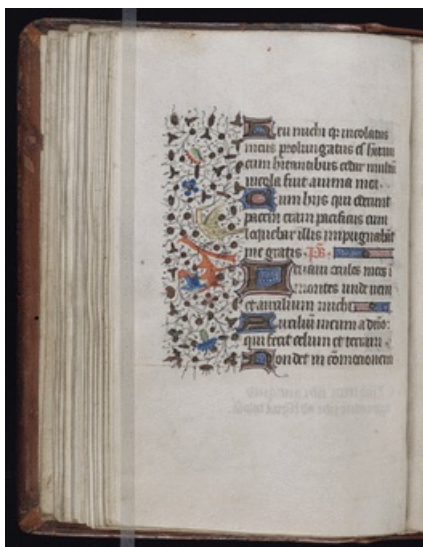 Heu michi qr incolatus
meus prolungatus est habitaui
cum habitantibus cedar multū
incola fuit anima mea.
Cum hiis qui oderunt
pacem eram pacificus cum
loquebar illis impugnabāt
me gratis. ps.
Leuaui oculos meos ī
montes unde veni
et auxilium michi
Auxilium meum a dno:
qui fecit celum et terram.
Non det in cōmotionem